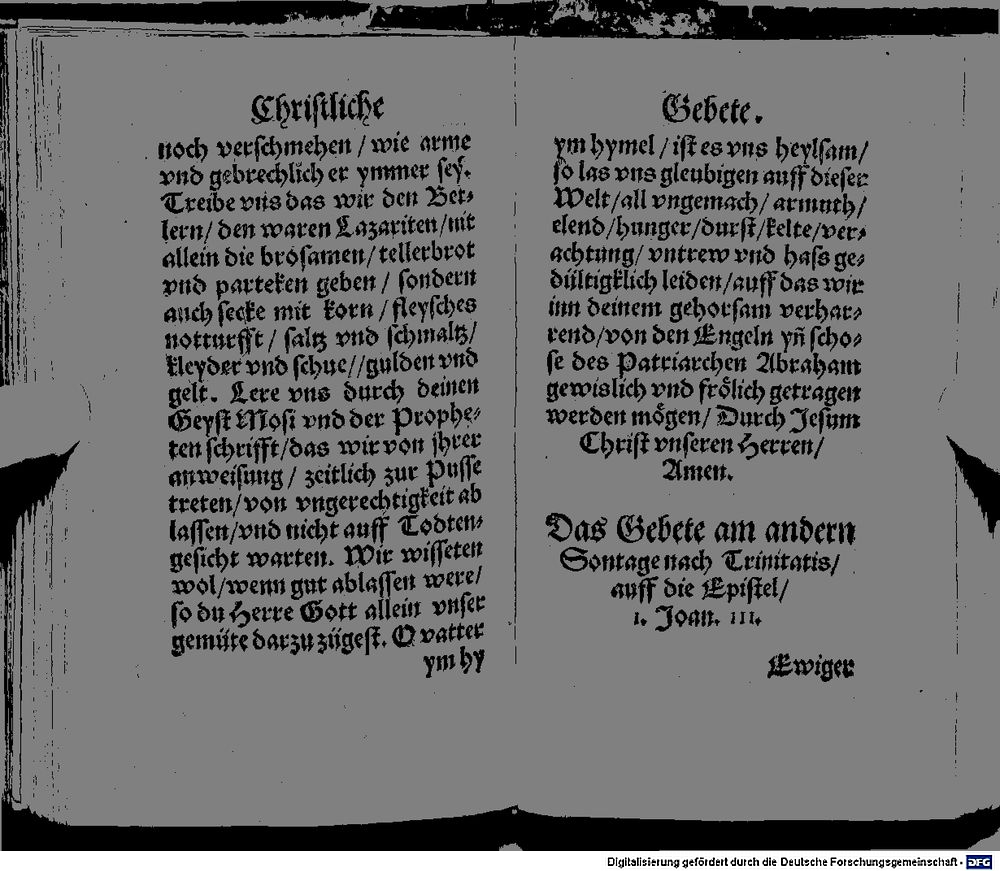 Christliche
noch verschmehen / wie arme
vnd gebrechlich er ymmer sey.
Treibe vns das wir den Bet⸗
lern / den waren Lazariten / nit
allein die brósamen / tellerbrot
vnd parteken geben / sondern
auch secke mit korn / fleysches
notturfft / saltz vnd schmaltz /
kleyder vnd schue / / gulden vnd
gelt. Lere vns durch deinen
Geyst Mosi vnd der Prophe⸗
ten schrifft / das wir von jhrer
anweisung / zeitlich zur Pusse
treten / von vngerechtigkeit ab
lassen / vnd nicht auff Todten⸗
gesicht warten. Wir wisseten
wol / wenn gut ablassen were /
so du Herre Gott allein vnser
gemüte darzu zügest. O vatter
ym hy
Gebete.
ym hymel / ist es vns heylsam /
so las vns gleubigen auff dieser
Welt / all vngemach / armuth /
elend / hunger / durst / kelte / ver⸗
achtung / vntrew vnd hass ge⸗
dültigklich leiden / auff das wir
inn deinem gehorsam verhar⸗
rend / von den Engeln yñ scho⸗
se des Patriarchen Abraham
gewislich vnd frölich getragen
werden mögen / Durch Jesum
Christ vnseren Herren /
Amen.
Das Gebete am andern
Sontage nach Trinitatis /
auff die Epistel /
1. Joan. III.
Ewiger
Digitalisierung gefördert durch die Deutsche Forschungsgemeinschaft - DFG